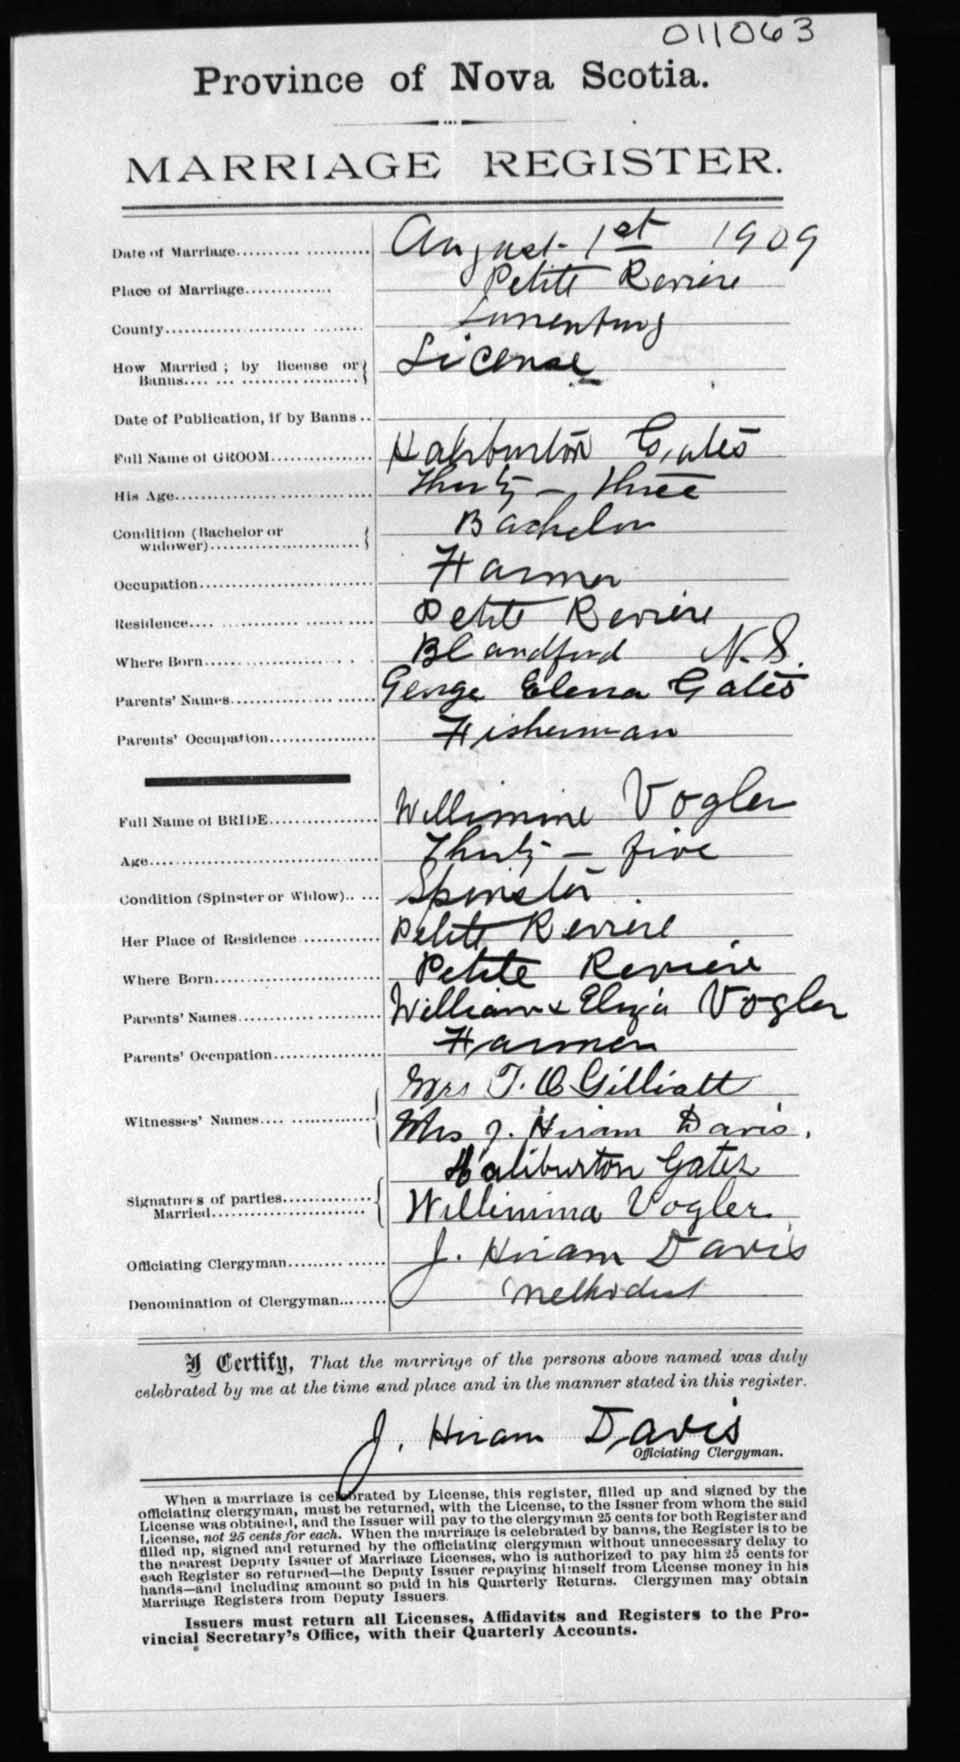 011063
Province of Nova Scotia.
MARRIAGE REGISTER.
Date of Marriage.................. August 1st 1909
Place of Marriage.............. Petite Reviere
County.................................. Lunenburg
How Married ; by license or License
Banns.... ... ..................
Date of Publication, if by Banns ..
Full Name of GROOM................ Haliburton Gates
His Age.................................. Thirty - three
Condition (Bachelor or Bachelor
widower)...........................
Occupation............................. Farmer
Residence.... .......................... Petite Reviere
Where Born........................ Blandford N.S.
Parents' Names........................ George Elena Gates
Parents' Occupation................. Fisherman
Full Name of BRIDE.................. Willimine Vogler
Age...................................... Thirty - five
Condition (Spinster or Widow)..... Spinster
Her Place of Residence ............ Petite Reviere
Where Born.......................... Petite Reviere
Parents' Names....................... William & Eliza Vogler
Parents' Occupation................ Farmer
Mrs T. O Gilliatt
Witnesses' Names....................
Mrs J. Hiram Davis.
Haliburton Gates
Signatures of parties...............
Married.......................... Willimina Vogler.
Officiating Clergyman............... J. Hiram Davis
Denomination of Clergyman......... Methodist
I Certify, That the marriage of the persons above named was duly
celebrated by me at the time and place and in the manner stated in this register.
J. Hiram Davis
Officiating Clergyman.
When a marriage is celebrated by License, this register, filled up and signed by the
officiating clergyman, must be returned, with the License, to the Issuer from whom the said
License was obtained, and the Issuer will pay to the clergyman 25 cents for both Register and
License, not 25 cents for each. When the marriage is celebrated by banns, the Register is to be
filled up, signed and returned by the officiating clergyman without unnecessary delay to
the nearest Deputy Issuer of Marriage Licenses, who is authorized to pay him 25 cents for
each Register so returned—the Deputy Issuer repaying himself from License money in his
hands—and including amount so paid in his Quarterly Returns. Clergymen may obtain
Marriage Registers from Deputy Issuers.
Issuers must return all Licenses, Affidavits and Registers to the Pro-
vincial Secretary's Office, with their Quarterly Accounts.